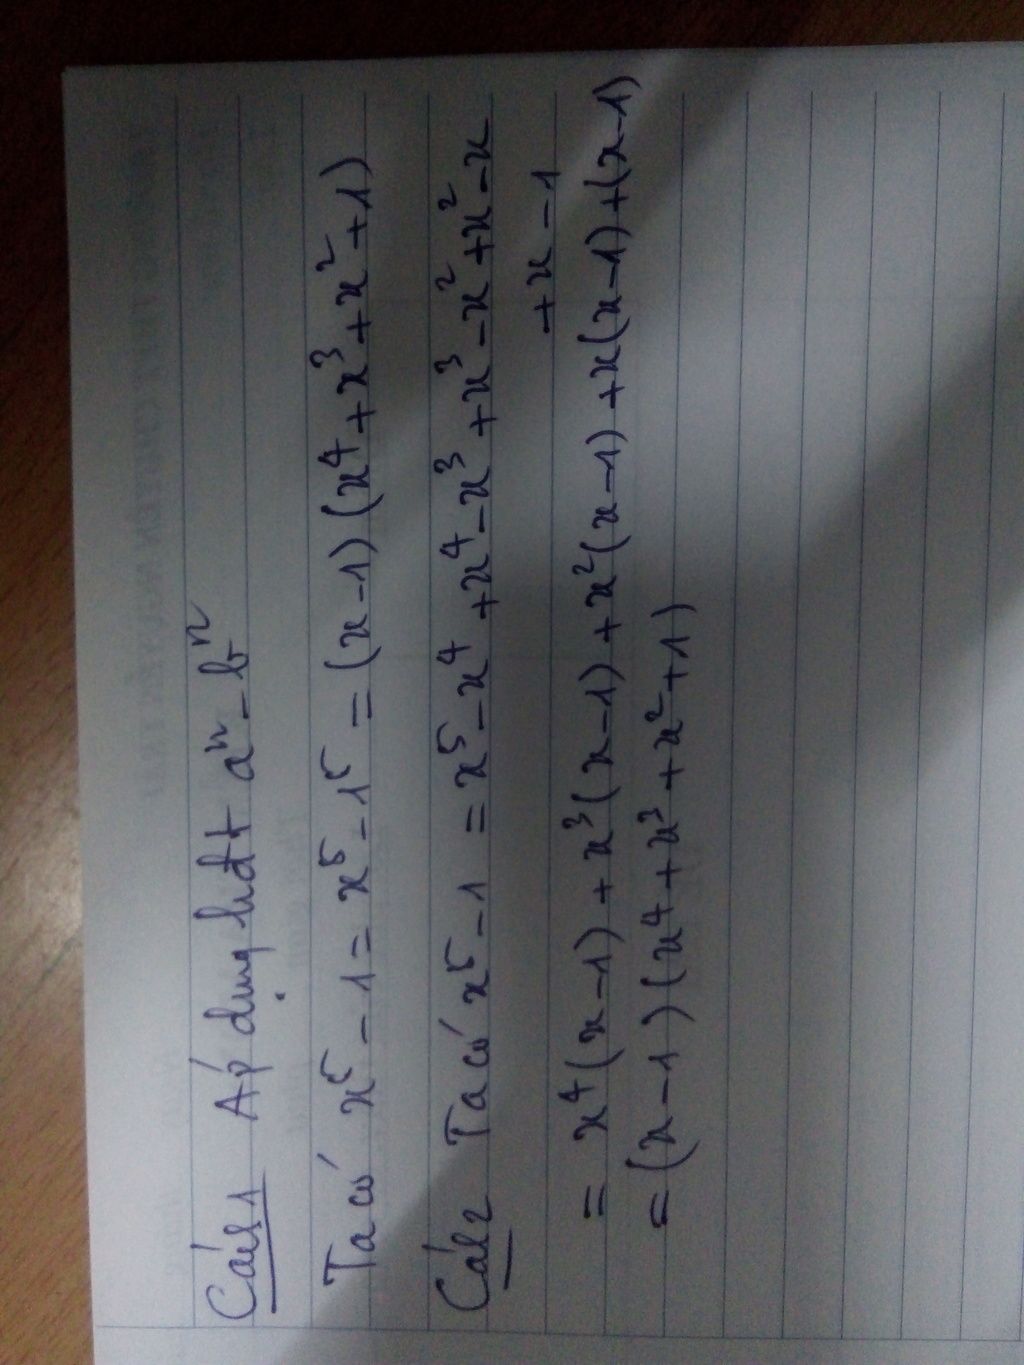 Cách 1 Áp dụng hđt aⁿ - bⁿ
Ta có x⁵ - 1 = x⁵ - 1⁵ = (x - 1)(x⁴ + x³ + x² + 1)
Cách 2 Ta có x⁵ - 1 = x⁵ - x⁴ + x⁴ - x³ + x³ - x² + x² - x
+ x - 1
= x⁴(x - 1) + x³(x - 1) + x²(x - 1) + x(x - 1) + (x - 1)
= (x - 1)(x⁴ + x³ + x² + 1)